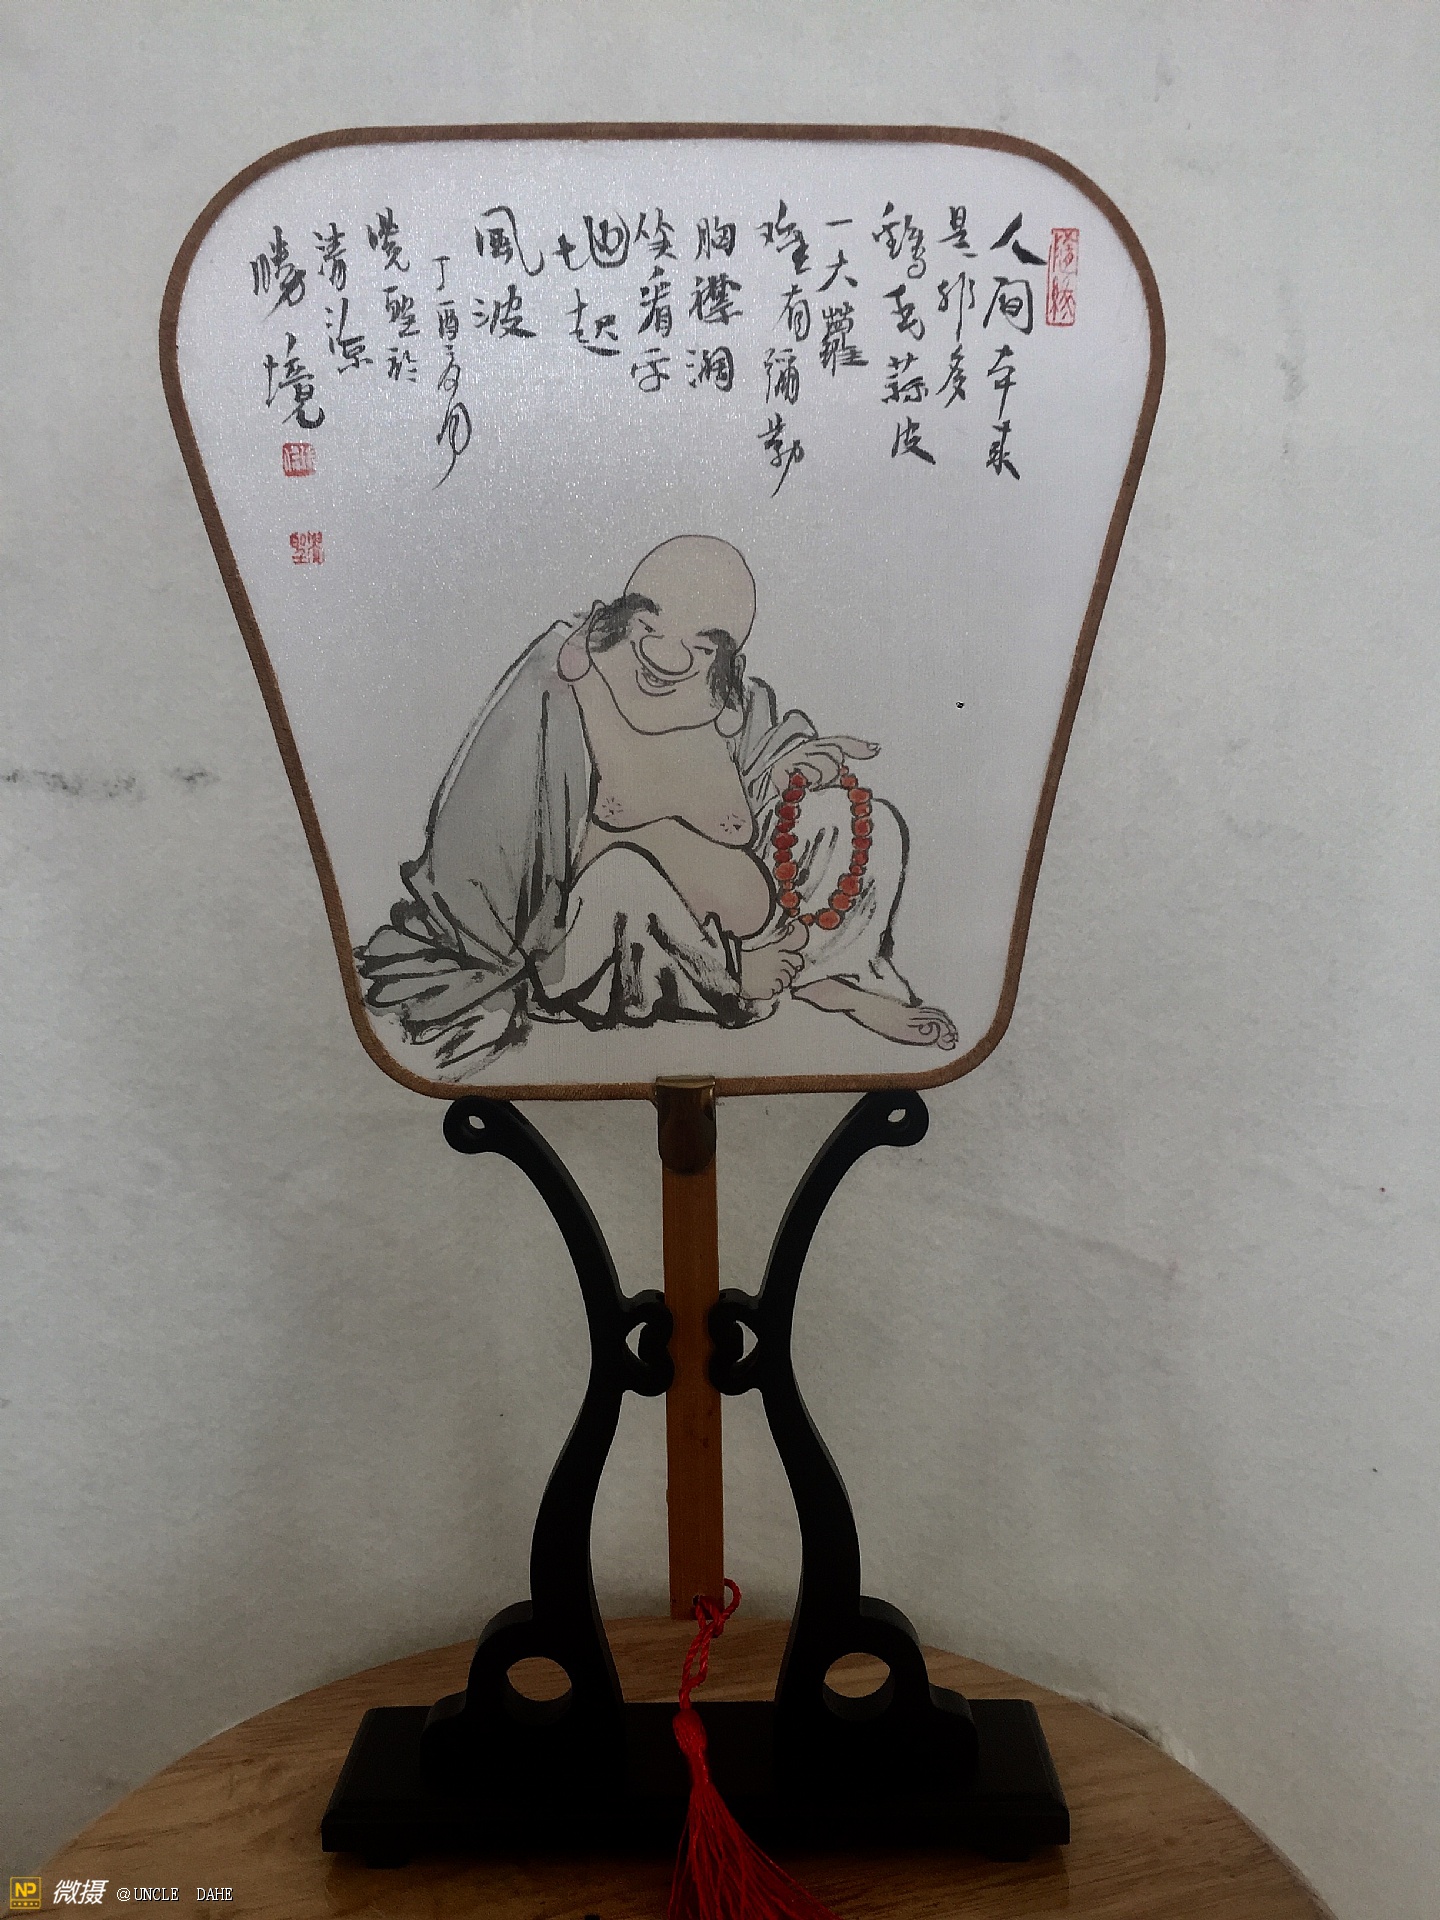 人间本来
是非多
鸡毛蒜皮
一大蘿
唯有彌勒
胸襟阔
笑看平
地起
風波
丁酉六月
覺聖於
清凉
勝境
微摄 @UNCLE DAHE
NP